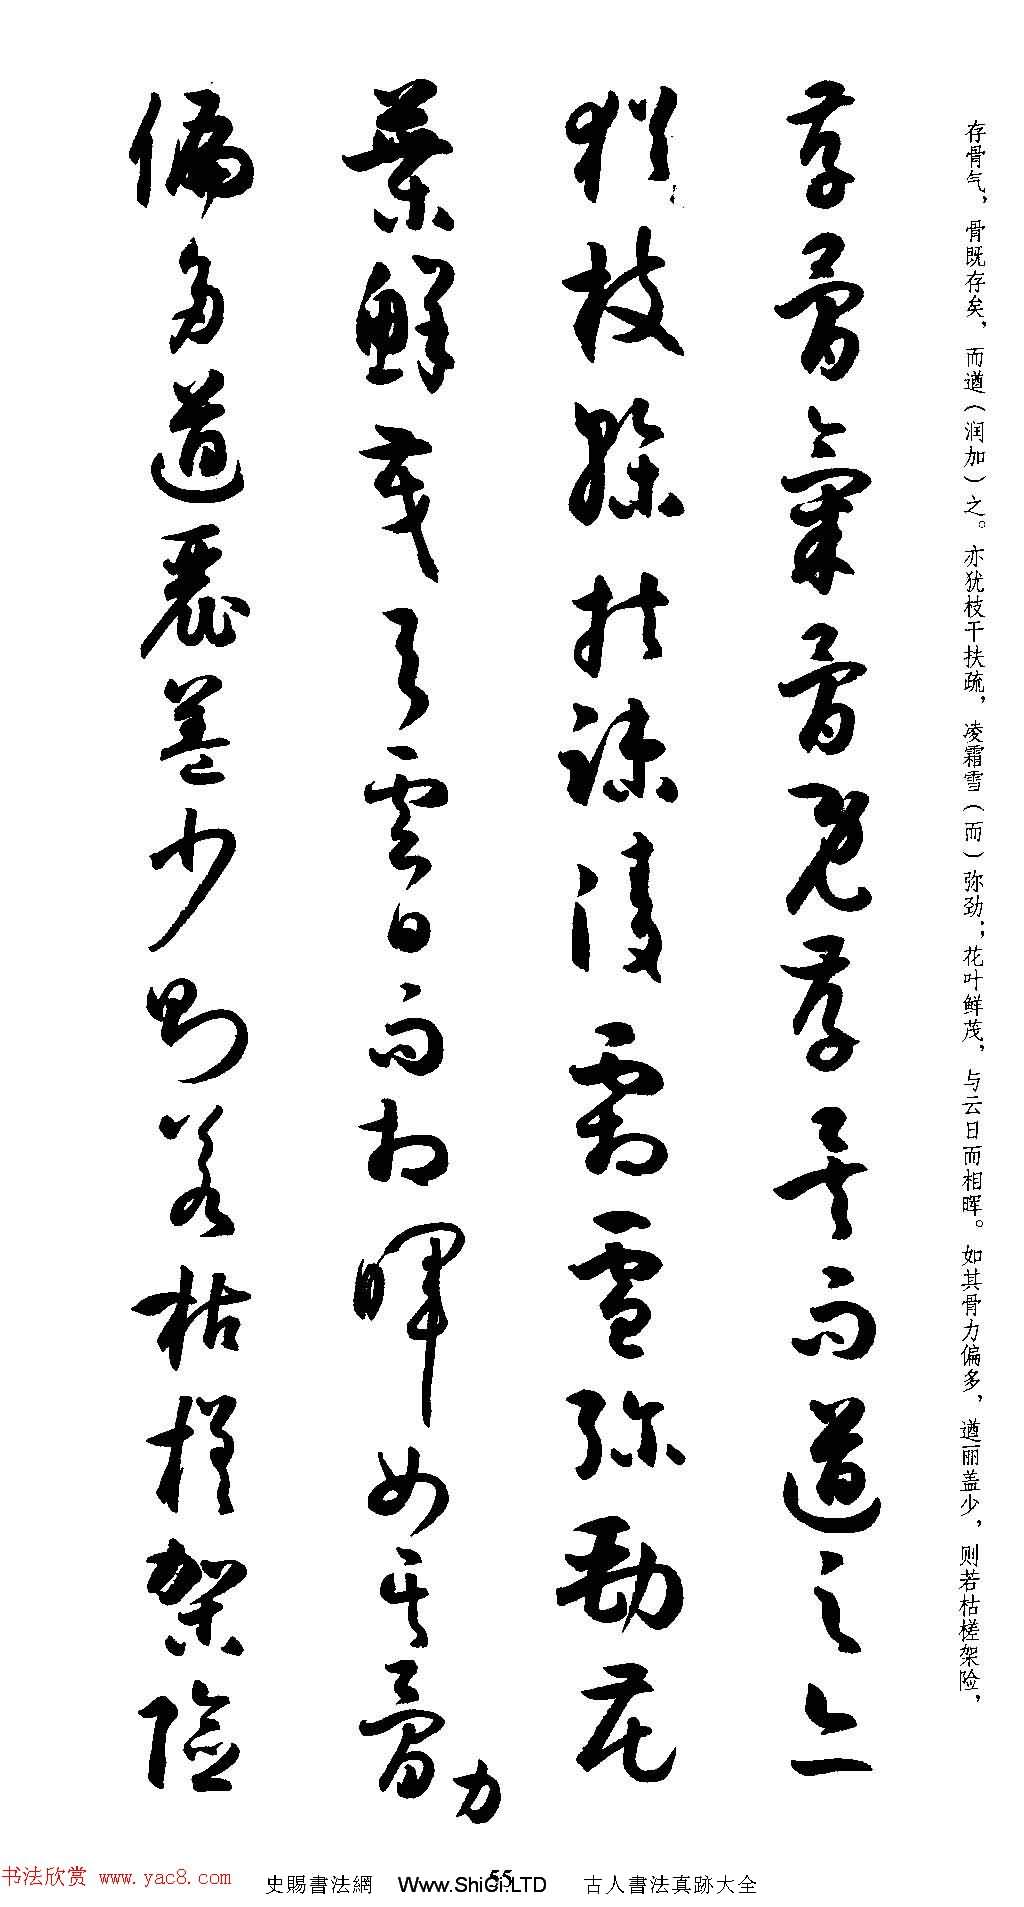 存骨气，骨既存矣，而遒（润加）之。亦犹枝干扶疏，凌霜雪（而）弥劲；花叶鲜茂，与云日而相晖。如其骨力偏多，遒丽盖少，则若枯槎架险，
存骨氣骨既存矣而遒之亦
猶枝幹扶疎凌霜雪弥勁花
葉鮮茂与雲日而相暉如其骨力
偏多遒麗蓋少則若枯槎架險
55
书法欣赏 www.yac8.com
史賜書法網 Www.ShiCi.LTD 古人書法真跡大全